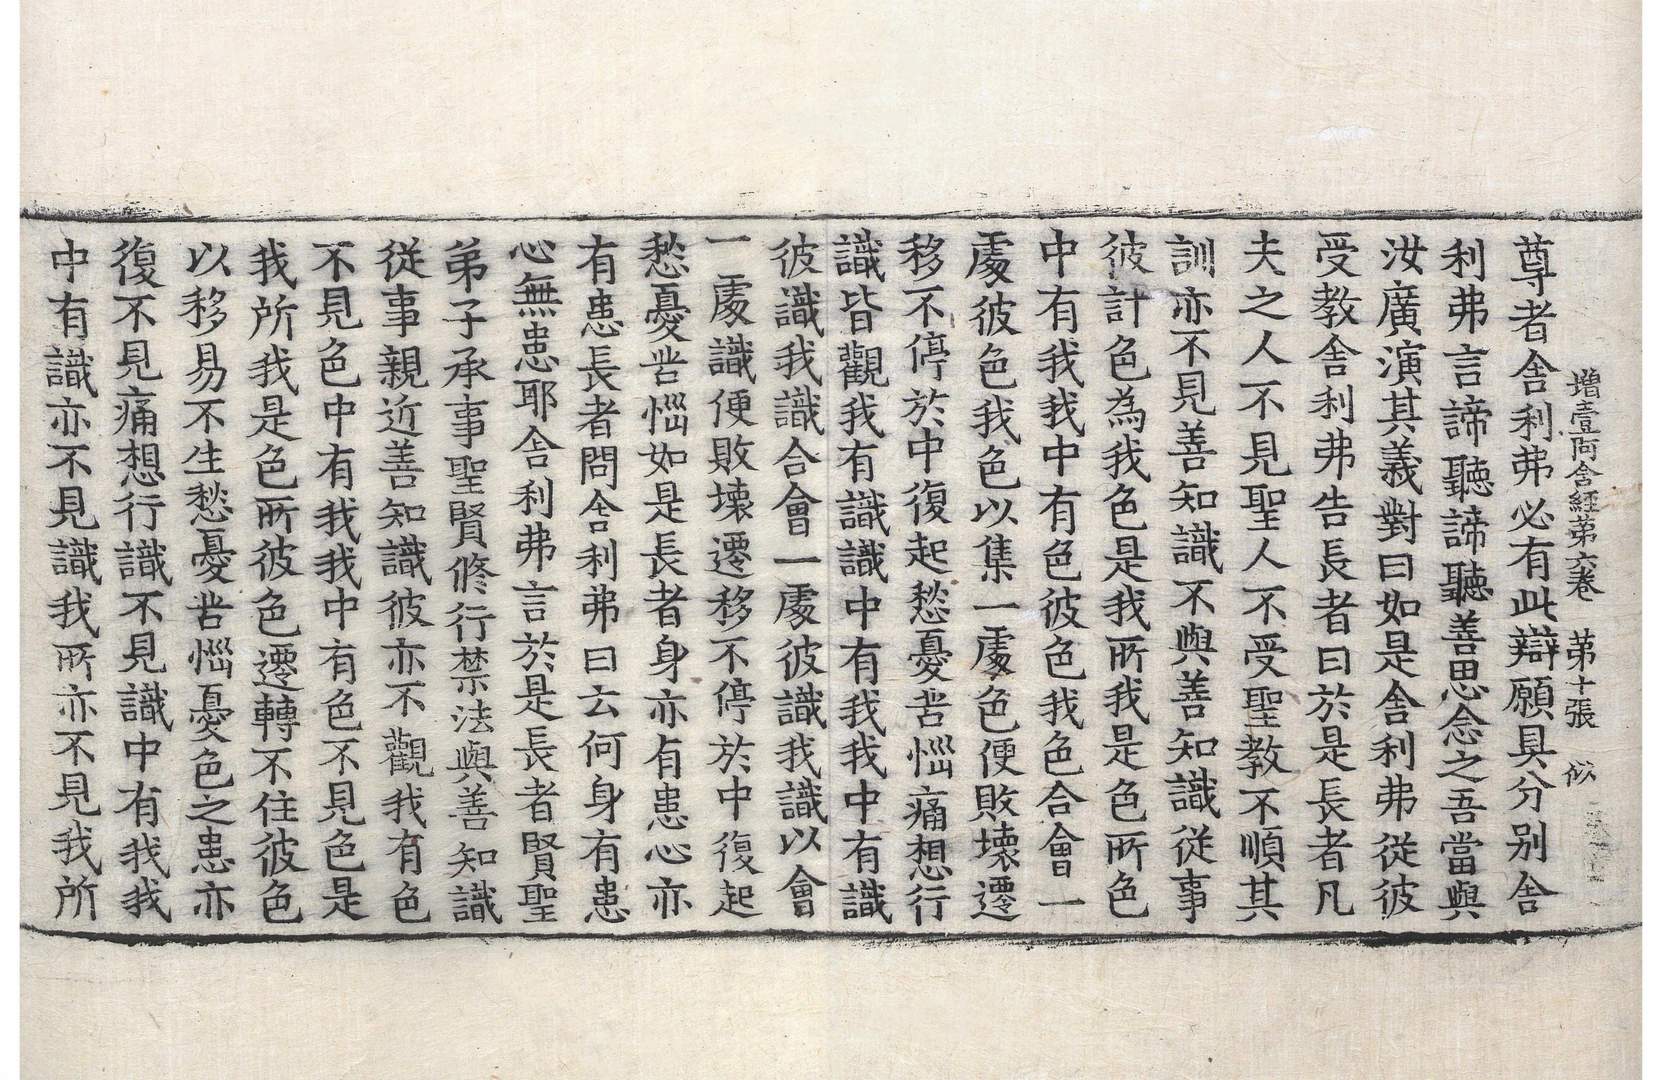 增壹阿含經第六卷 第十張 似
尊者舍利弗必有此辯願具分別舍
利弗言諦聽諦聽善思念之吾當與
汝廣演其義對曰如是舍利弗從彼
受教舍利弗告長者曰於是長者凡
夫之人不見聖人不受聖教不順其
訓亦不見善知識不與善知識從事
彼計色為我色是我所我是色所色
中有我我中有色彼色我色合會一
處彼色我色以集一處色便敗壞遷
移不停於中復起愁憂苦惱痛想行
識皆觀我有識識中有我我中有識
彼識我識合會一處彼識我識以會
一處識便敗壞遷移不停於中復起
愁憂苦惱如是長者身亦有患心亦
有患長者問舍利弗曰云何身有患
心無患耶舍利弗言於是長者賢聖
弟子承事聖賢修行禁法與善知識
從事親近善知識彼亦不觀我有色
不見色中有我我中有色不見色是
我所我是色所彼色遷轉不住彼色
以移易不生愁憂苦惱憂色之患亦
復不見痛想行識不見識中有我我
中有識亦不見識我所亦不見我所